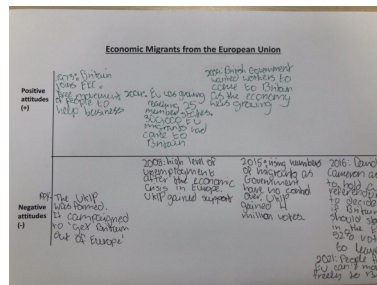 Economic Migrants from the European Union
Positive
attitudes
(+)
1973: Britain
joins EEC.
Free movement
of people to
help business
2004: EU was growing
reaching 25
member states.
EU
migrants had
come to
Britain
2004: British Government
wanted workers to
come to Britain
as the economy
was growing
Negative
attitudes
(-)
The UKIP
was formed.
It campaigned
to 'get Britain
out of Europe'
2008: high level of
unemployment
after the economic
crisis in Europe.
UKIP gained support
2015: rising numbers
of migrants as
Government
have no control
over. UKIP
gained 4
million votes.
2016: David
Cameron
to hold a
to decide
if Britain
should stay
in the E
52% vot
to leave
2021: People f
EU can't mo
freely to